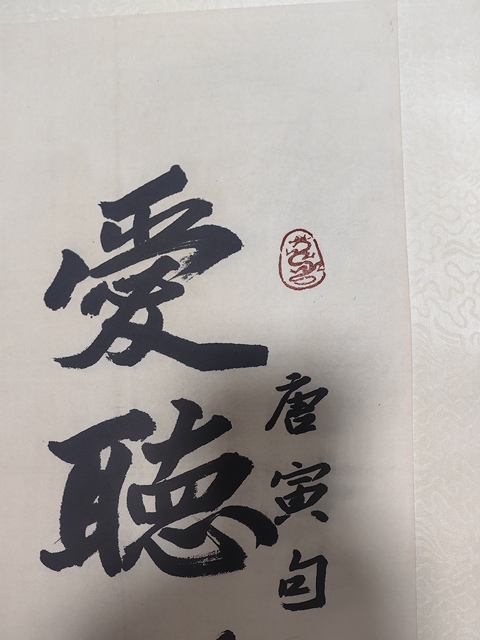 唐寅句
愛聽